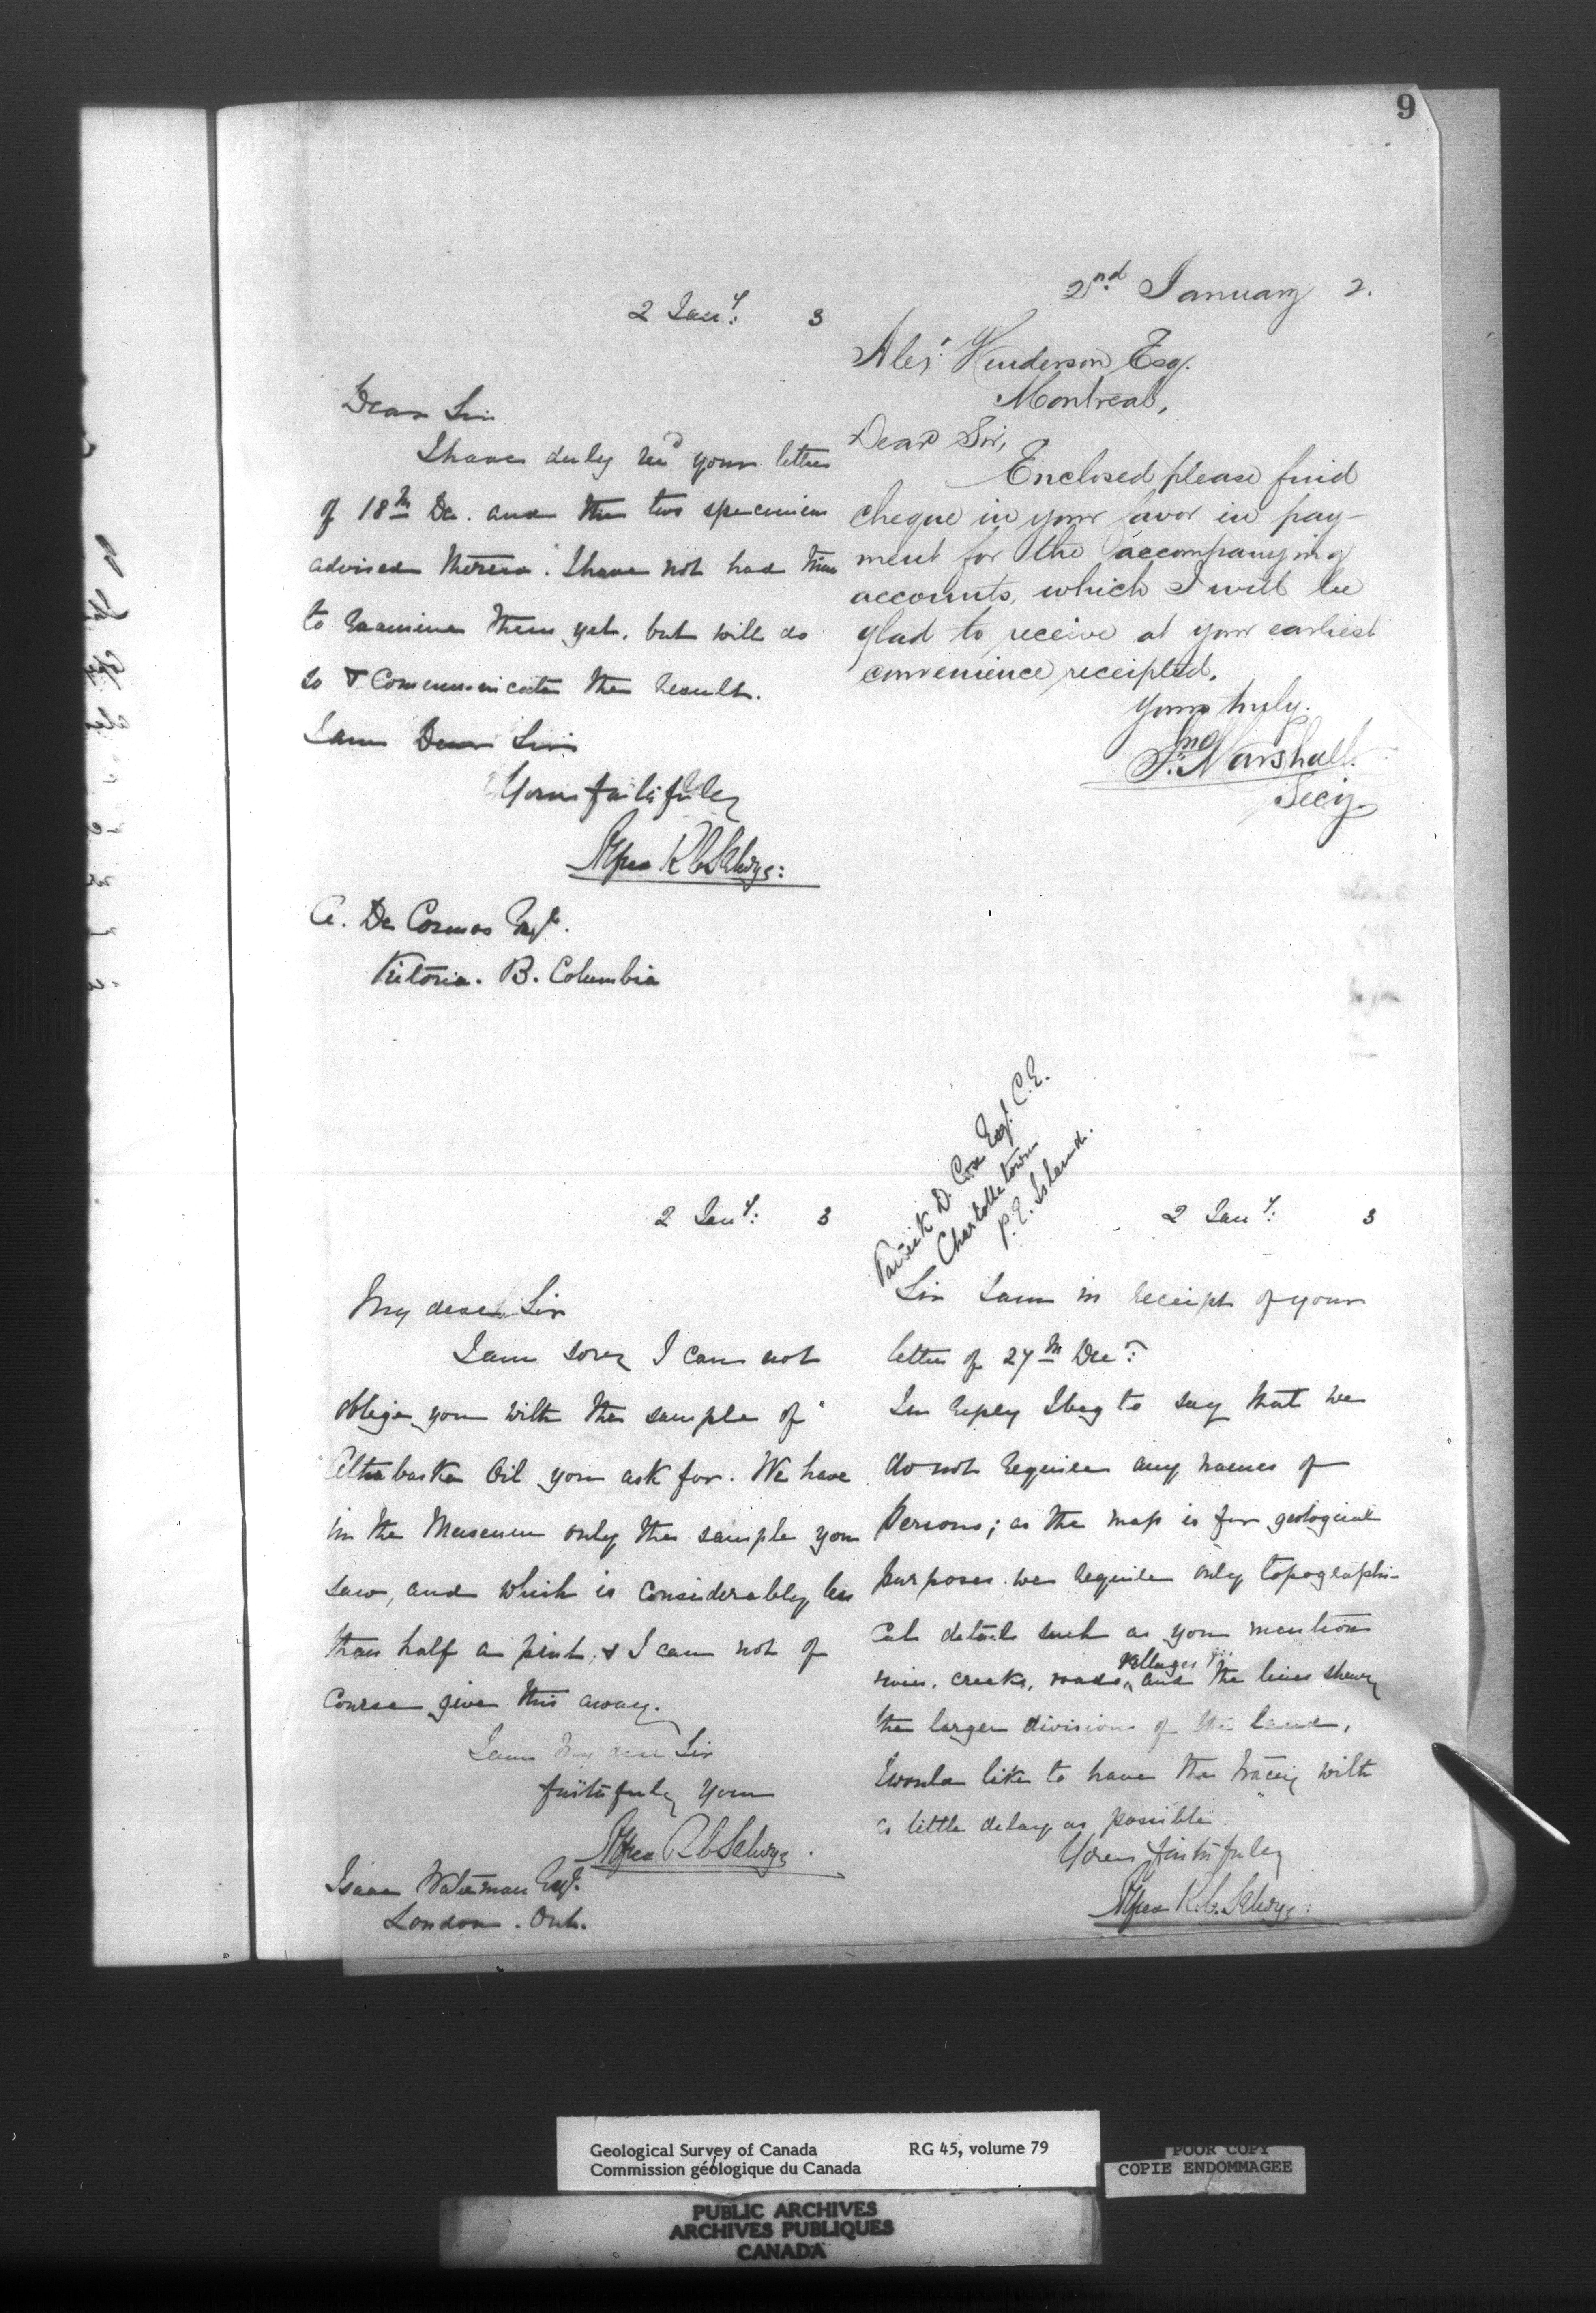 9
2 Jany: 3
Dear Sir
I have duly recd your letter
of 18th Dec. and the two specimens
advised therein. I have not had time
to examine them yet, but will do
so & communicate the result.
I am Dear Sir
Yours faithfully
Alfred R C Selwyn:
A. De Cosmos Esqr.
Victoria. B. Columbia
2nd January 2.
Alexr Henderson Esq.
Montreal,
Dear Sir,
Enclosed please find
cheque in your favor in pay-
ment for the accompanying
accounts, which I will be
glad to receive at your earliest
convenience receipted.
Yours truly.
Jno. Marshall.
Secy
2 Jany: 3
My dear Sir
I am sorry I can not
oblige you with the sample of
Athabaska Oil you ask for. We have
in the Museum only the sample you
saw, and which is considerably less
than half a pint, & I can not of
course give this away.
I am My dear Sir
faithfully Yours
Alfred R C Selwyn.
Isaac Waterman Esqr.
London. Ont.
D. Cox Esqr. C.E.
Charlottetown
P.E. Island.
2 Jany: 3
Sir I am in receipt of your
letter of 27th Decr:
In reply I beg to say that we
do not require any names of
Persons; as the map is for geological
purposes we require only topographi-
cal details such as you mention
rivers, creeks, roads, villages and the lines shewing
the larger divisions of the land,
I would like to have the tracing with
as little delay as possible.
Yours faithfully
Alfred R.C. Selwyn:
Geological Survey of Canada RG 45, volume 79
Commission géologique du Canada
POOR COPY
COPIE ENDOMMAGEE
PUBLIC ARCHIVES
ARCHIVES PUBLIQUES
CANADA